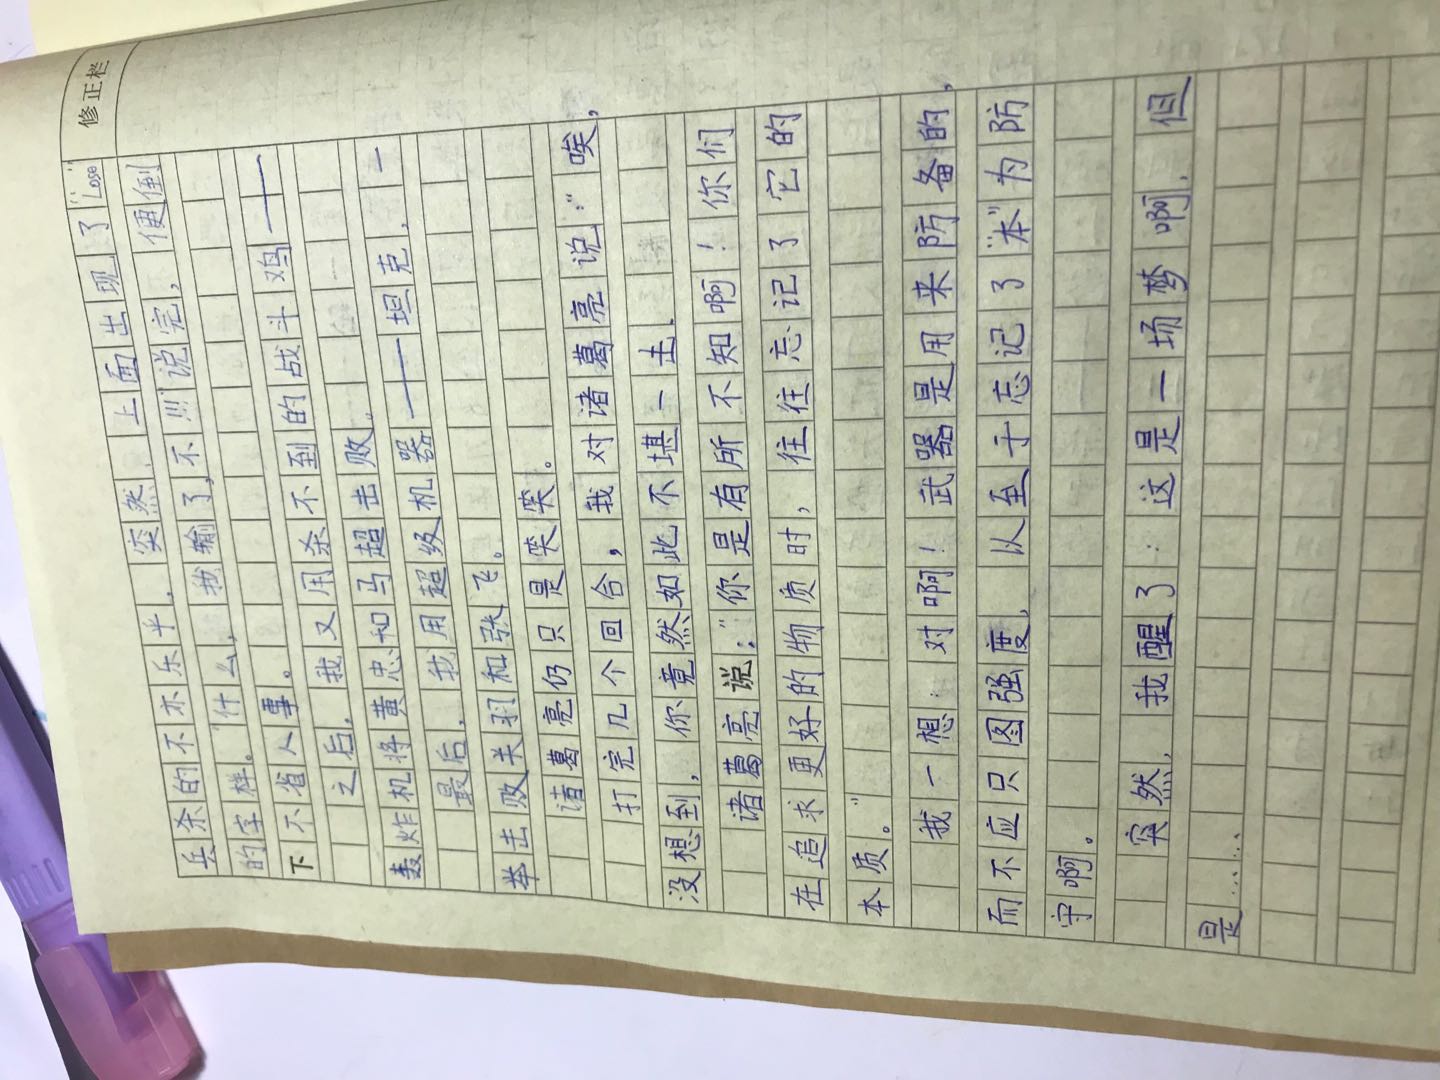 修正栏
兵杀的不亦乐乎，突然，上面出现了“Lose”
的字样。“什么，我输了，不!!!说完，便倒
下不省人事。
之后，我又用杀不到的战斗鸡——
轰炸机将黄忠和马超击败。
最后，我用超级机器——坦克，一
举击败关羽和张飞。
诸葛亮仍只是笑笑。
打完几个回合，我对诸葛亮说：“唉，
没想到，你竟然如此不堪一击。
诸葛亮说：“你是有所不知啊！你们
在追求更好的物质时，往往忘记了它的
本质。”
我一想：对啊！武器是用来防备的，
而不应只图强度，以至于忘记了“本”为防
守啊。
突然，我醒了：这是一场梦啊，但
是……